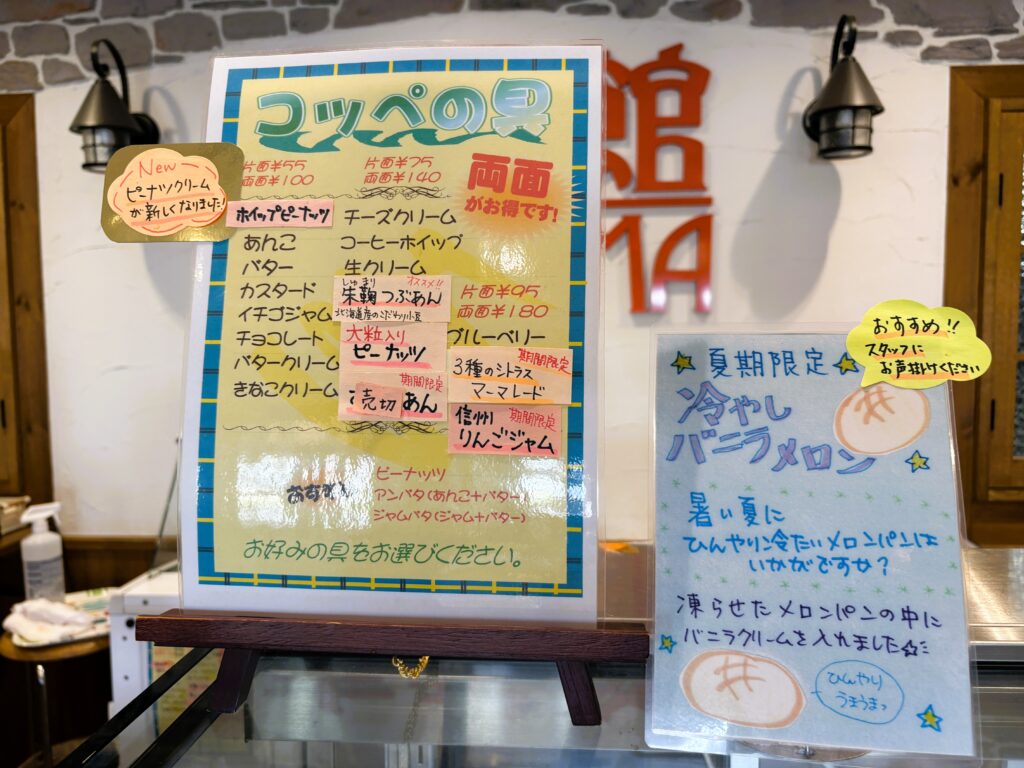 コッペの具
片面¥55
両面¥100
片面¥75
両面¥140
両面
がお得です!
New
ピーナツクリーム
が新しくなりました!
ホイップピーナッツ
あんこ
バター
カスタード
イチゴジャム
チョコレート
バタークリーム
きなこクリーム
チーズクリーム
コーヒーホイップ
生クリーム
しゅまり
オススメ!!
朱鞠つぶあん
北海道産のこだわり小豆
大粒入り
ピーナッツ
期間限定
売切 あん
片面¥95
両面¥180
ブルーベリー
期間限定
3種のシトラス
マーマレード
信州 期間限定
りんごジャム
ピーナッツ
アンバタ(あんこ+バター)
ジャムバタ(ジャム+バター)
お好みの具をお選びください。
館
MA
おすすめ!!
スタッフに
お声掛けください
夏期限定
冷やし
バニラメロン
暑い夏に
ひんやり冷たいメロンパンは
いかがですか?
凍らせたメロンパンの中に
バニラクリームを入れました☆
ひんやり
うまうまっ